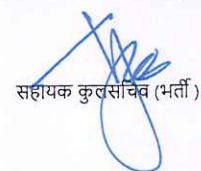 सहायक कुलसचिव (भर्ती)